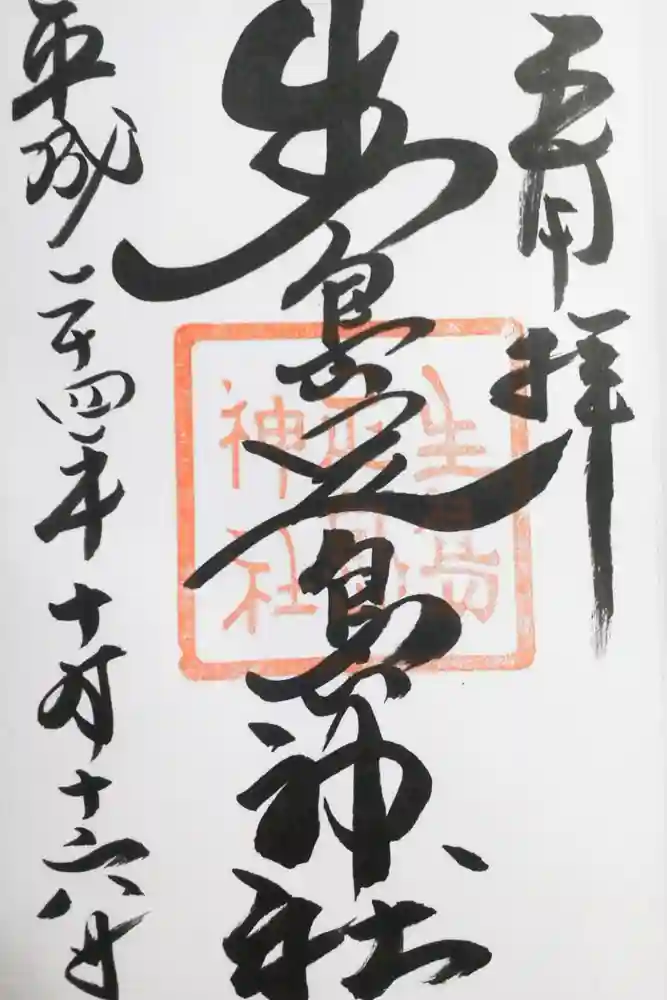 拝
生島足島神社
生島
足島
神社
平成二十四年十月十六日